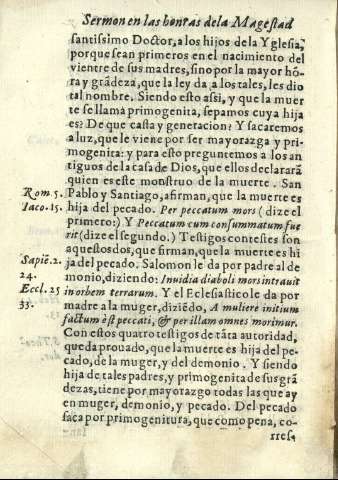 Sermon en las honras de la Magestad
santissimo Doctor, a los hijos de la Yglesia,
porque sean primeros en el nacimiento del
vientre de sus madres, sino por la mayor hō
ra y grādeza, que la ley da a los tales, les dio
tal nombre. Siendo esto assi, y que la muer
te se llama primogenita, sepamos cuya hija
es? De que casta y genetacion? Y sacaremos
a luz, que le viene por ser mayorazga y pri-
mogenita: y para esto preguntemos a los an
tiguos de la casa de Dios, que ellos declarará
quien es este monstruo de la muerte. San
Rom. 5. Pablo y Santiago, afirman, que la muerte es
Iaco. 15. hija del pecado. Per peccatum mors (dize el
primero:) Y Peccatum cum consummatum fue
rit (dize el segundo.) Testigos contestes son
aquestos dos, que firman, que la muerte es hi
Sapiē. 2. ja del pecado. Salomon le da por padre al de
24. monio, diziendo: Inuidia diaboli mors intrauit
Eccl. 25 in orbem terrarum. Y el Eclesiastico le da por
33. madre a la muger, diziēdo, A muliere initium
factum est peccati, & per illam omnes morimur.
Con estos quatro testigos de tāta autoridad,
queda prouado, que la muerte es hija del pe-
cado, de la muger, y del demonio. Y siendo
hija de tales padres, y primogenita de sus grā
dezas, tiene por mayorazgo todas las que ay
en muger, demonio, y pecado. Del pecado
saca por primogenitura, que como pena, co-
rres-